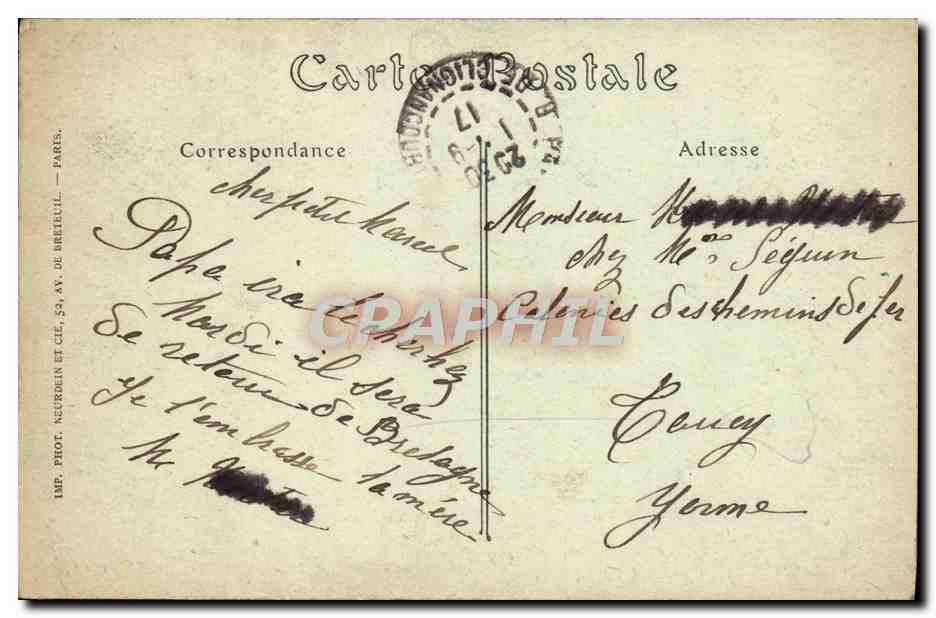 Carte Postale
Correspondance
Adresse
R. DE CLIGNANCOURT
17
1 -9
20 30
cher petit Marcel
Papa ira te cherchez
Mardi il sera
de retour de Bretagne
Je t'embrasse ta mère
M
Monsieur
chez Mme Séguin
Colonies des chemins de fer
Toucy
Yonne
IMP. PHOT. NEURDEIN ET CIE, 52, AV. DE BRETEUIL. — PARIS.
CRAPHIL